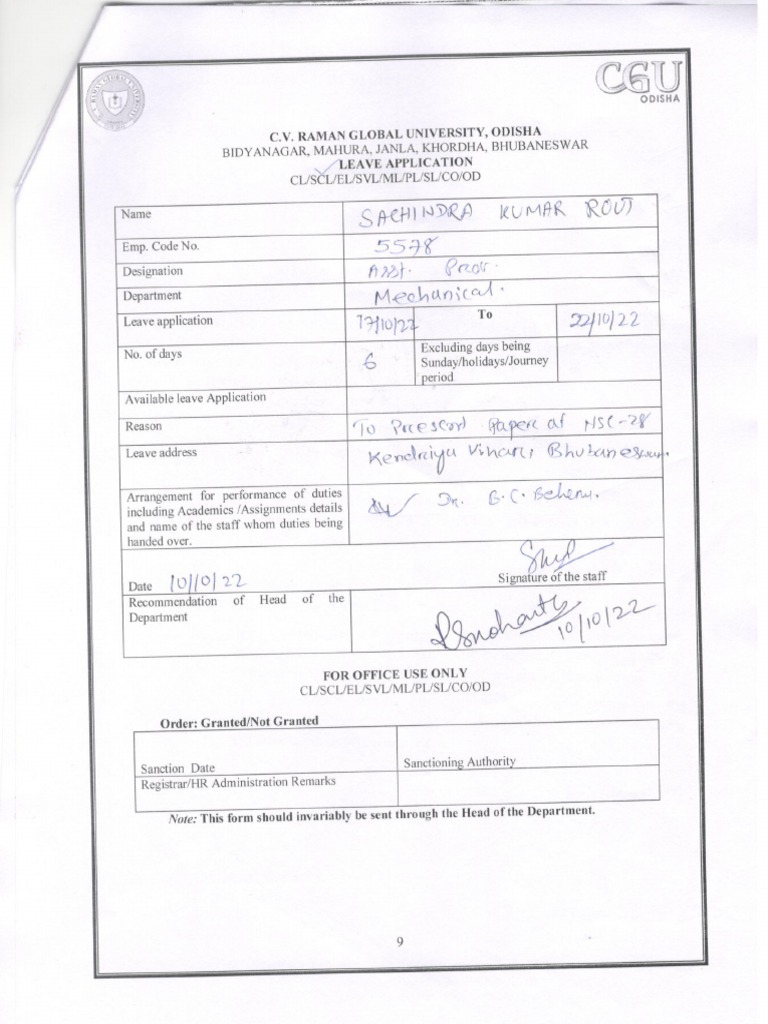 CGU
ODISHA
C.V. RAMAN GLOBAL UNIVERSITY, ODISHA
BIDYANAGAR, MAHURA, JANLA, KHORDHA, BHUBANESWAR
LEAVE APPLICATION
CL/SCL/EL/SVL/ML/PL/SL/CO/OD
Name SACHINDRA KUMAR ROUT
Emp. Code No. 5578
Designation Asst. Prof.
Department Mechanical.
Leave application 17/10/22 To 22/10/22
No. of days 6 Excluding days being
Sunday/holidays/Journey
period
Available leave Application
Reason To Present Paper at NSC-28
Leave address Kendriya Vihar, Bhubaneswar.
Arrangement for performance of duties
including Academics /Assignments details
and name of the staff whom duties being
handed over.
Dr. B.C. Behera.
Date 10/10/22
Signature of the staff
Recommendation of Head of the
Department
10/10/22
FOR OFFICE USE ONLY
CL/SCL/EL/SVL/ML/PL/SL/CO/OD
Order: Granted/Not Granted
Sanction Date Sanctioning Authority
Registrar/HR Administration Remarks
Note: This form should invariably be sent through the Head of the Department.
9